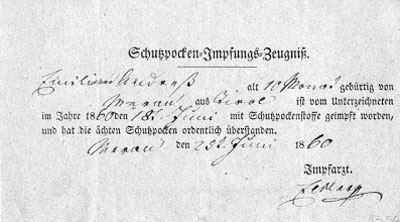 Schutzpocken-Impfungs-Zeugniß.
Emilian Andreß alt 10 Monat gebürtig von
Meran aus Tirol ist vom Unterzeichneten
im Jahre 1860 den 18t. Juni mit Schutzpockenstoffe geimpft worden,
und hat die ächten Schutzpocken ordentlich überstanden.
Meran den 23t. Juni 1860
Impfarzt.